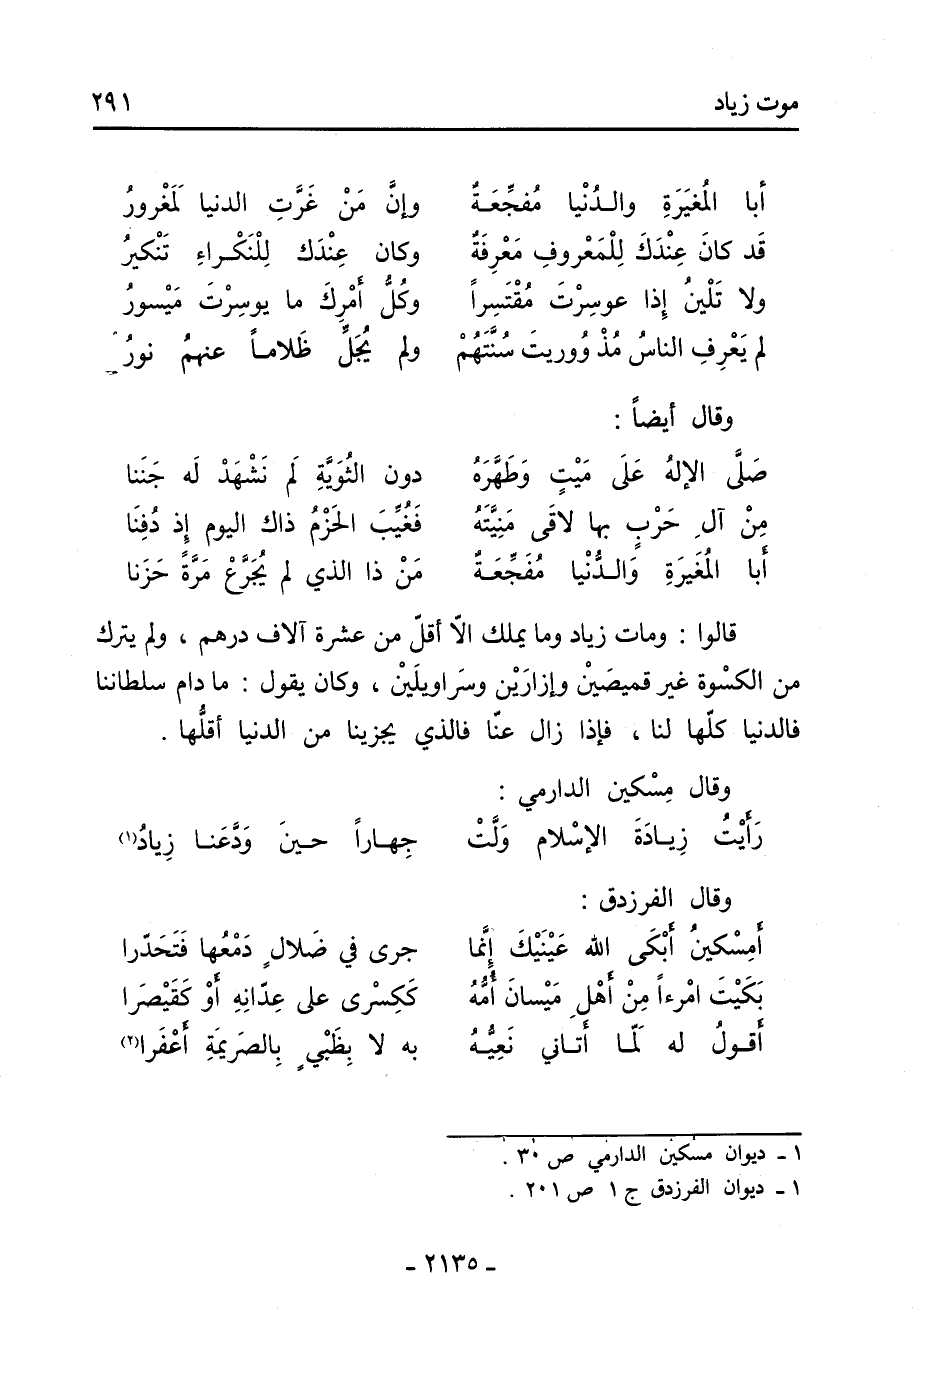 موت زياد ٢٩١
أبا المُغيَرَةِ والدُنْيا مُفجِّعَةٌ وإنَّ مَنْ غَرَّتِ الدنيا لَمَغْرورُ
قَد كانَ عِنْدَكَ لِلْمَعْروفِ مَعْرِفَةٌ وكان عِنْدَك لِلْنَكْراءِ تَنْكيرُ
ولا تَلْينُ إذا عوسِرْتَ مُقْتَسِراً وكُلُّ أَمْرِكَ ما يوسِرْتَ مَيْسورُ
لم يَعْرِفِ الناسُ مُذْ ووريتَ سُنَّتَهُمْ ولم يُجَلِّ ظَلاماً عنهمُ نورُ
وقال أيضاً :
صَلَّى الإلهُ عَلَى مَيْتٍ وَطَهَّرَهُ دون الثُوَيَّةِ لَم نَشْهَدْ لَه جَنَنا
مِنْ آلِ حَرْبٍ بها لاقَى مَنِيَّتَهُ فَغُيِّبَ الحَزْمُ ذاك اليوم إِذ دُفِنَا
أَبا المُغَيرَةِ وَالدُّنْيا مُفَجِّعَةٌ مَنْ ذا الذي لم يُجَرَّعْ مَرَّةً حَزَنا
قالوا : ومات زياد وما يملك الّا أقلّ من عشرة آلاف درهم ، ولم يترك
من الكسْوة غير قميصَيْن وإزارَيْن وسَراويلَيْن ، وكان يقول : ما دام سلطاننا
فالدنيا كلّها لنا ، فإذا زال عنّا فالذي يجزينا من الدنيا أقلُّها .
وقال مِسْكين الدارمي :
رَأَيْتُ زِيادَةَ الإسْلام وَلَّتْ جِهاراً حينَ وَدَّعَنا زِيادُ(١)
وقال الفرزدق :
أَمِسْكينُ أَبْكَى الله عَيْنَيْكَ إنَّما جرى في ضَلالٍ دَمْعُها فَتَحَدّرا
بَكَيْتَ امْرءاً مِنْ أَهْلِ مَيْسانَ أُمُّهُ كَكِسْرى على عِدّانِهِ أَوْ كَقَيْصَرَا
أَقولُ له لَمّا أَتاني نَعِيُّهُ به لا بِظَبْيٍ بِالصَريمَةِ أَعْفَرا(٢)
١ ـ ديوان مسكين الدارمي ص ٣٠ .
١ ـ ديوان الفرزدق ج ١ ص ٢٠١ .
ـ ٢١٣٥ ـ